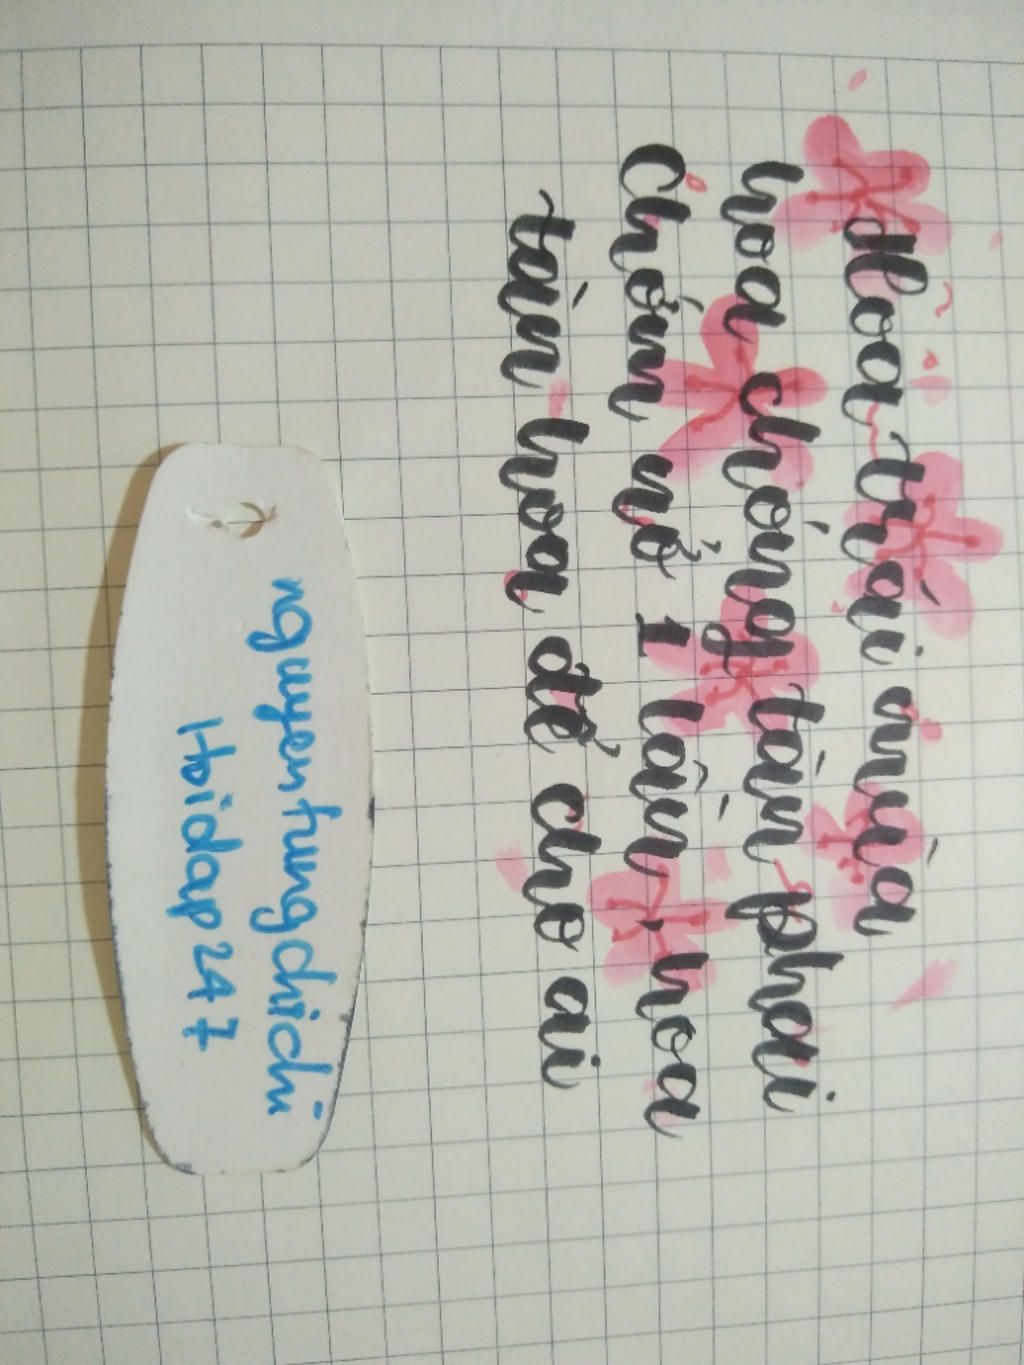 Hoa trái mùa
hoa chóng tàn phai
Chớm nở 1 lần, hoa
tàn hoa để cho ai
nguyentungchichi
Hoidap247